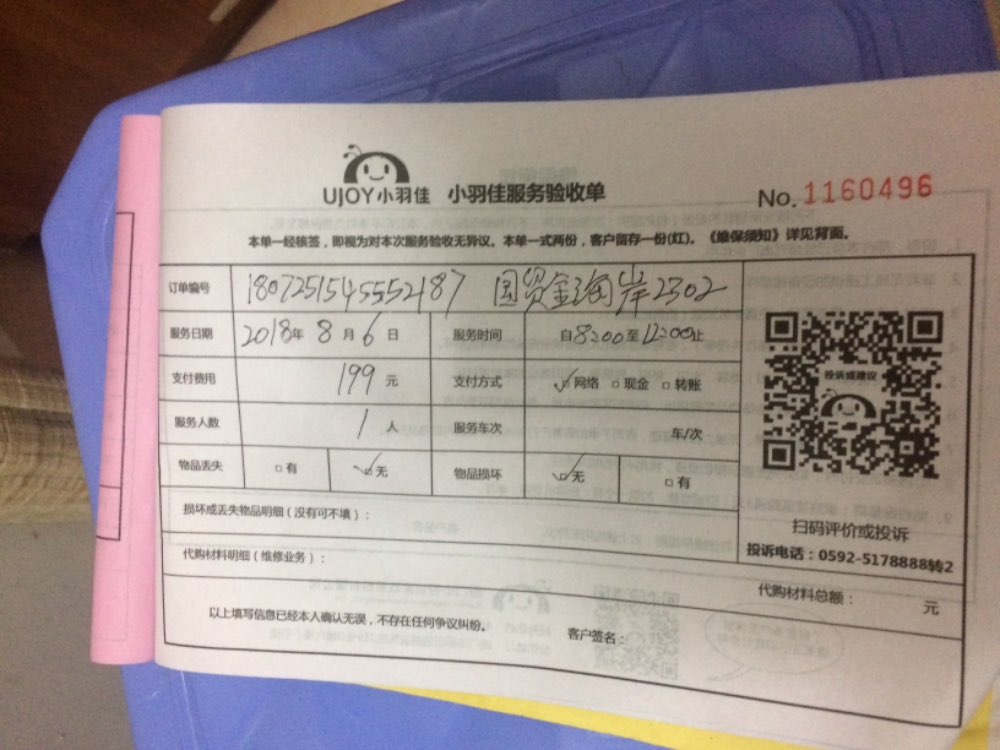 UJOY小羽佳 小羽佳服务验收单 No.1160496
本单一经核签，即视为对本次服务验收无异议。本单一式两份，客户留存一份(红)。《维保须知》详见背面。
订单编号 1807251545552187 国贸金海岸2302
服务日期 2018年8月6日 服务时间 自8:00至12:00止
支付费用 199元 支付方式 ✓□网络 □现金 □转账
服务人数 1人 服务车次 车/次
物品丢失 □有 ✓□无 物品损坏 ✓□无 □有
损坏或丢失物品明细（没有可不填）：
代购材料明细（维修业务）：
投诉或建议
扫码评价或投诉
投诉电话：0592-5178888转2
代购材料总额： 元
以上填写信息已经本人确认无误，不存在任何争议纠纷。 客户签名：